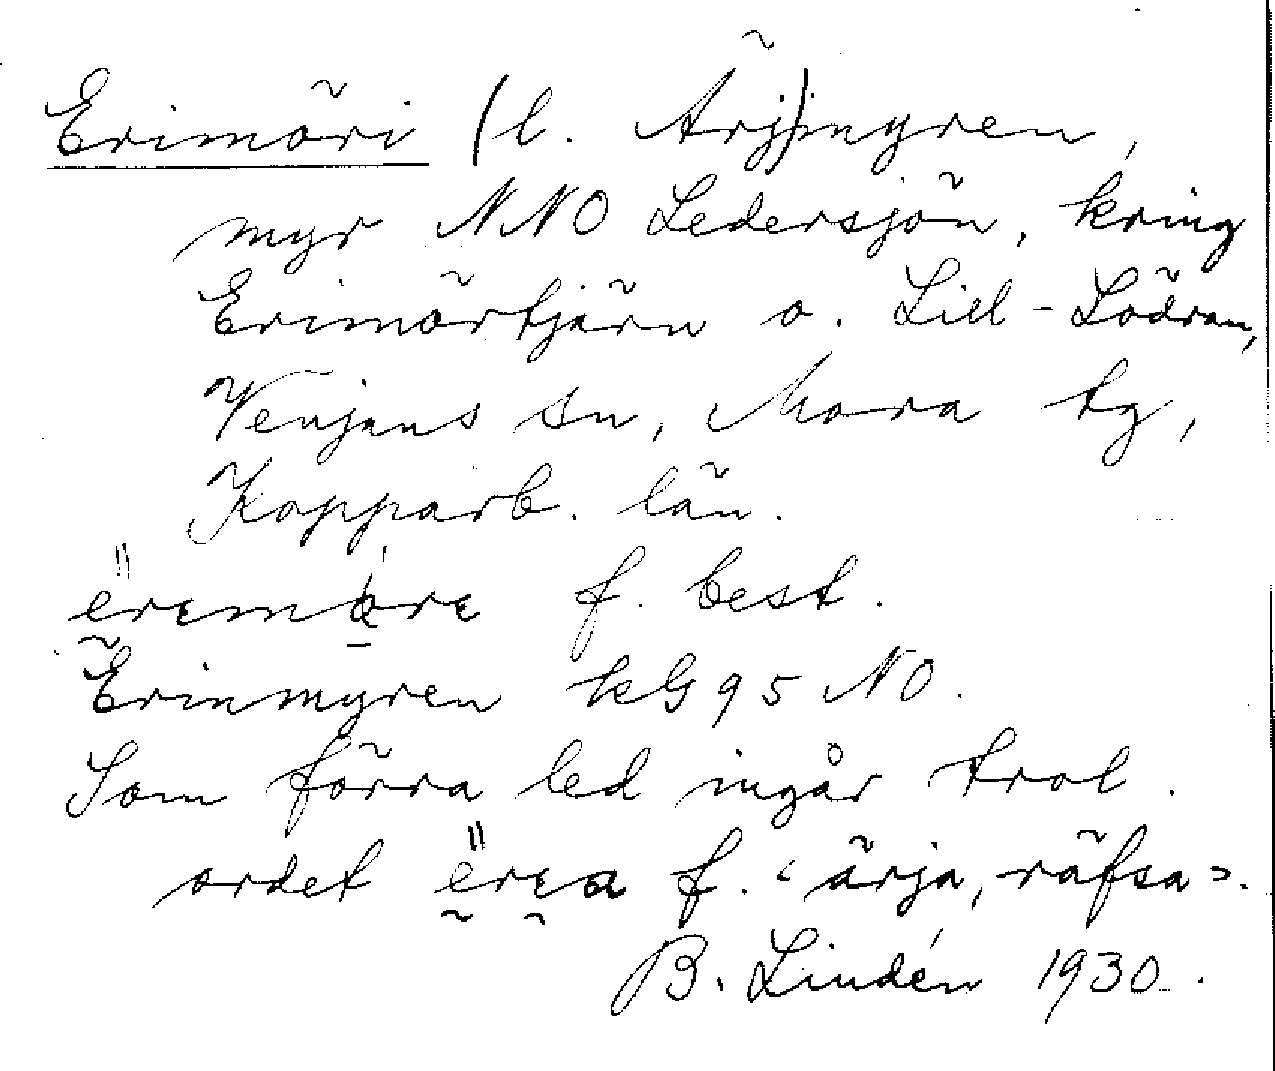 Erimöri (l. Ärj)myren,
myr NNO Ledersjön, kring
Erimörtjärn o. Lill-Lödran,
Venjans sn, Mora tg,
Kopparb. län.
f. best.
Erinmyren kG 95 NO.
Som förra led ingår trol.
ordet f. 'ärja, räfsa'.
B. Lindén 1930.